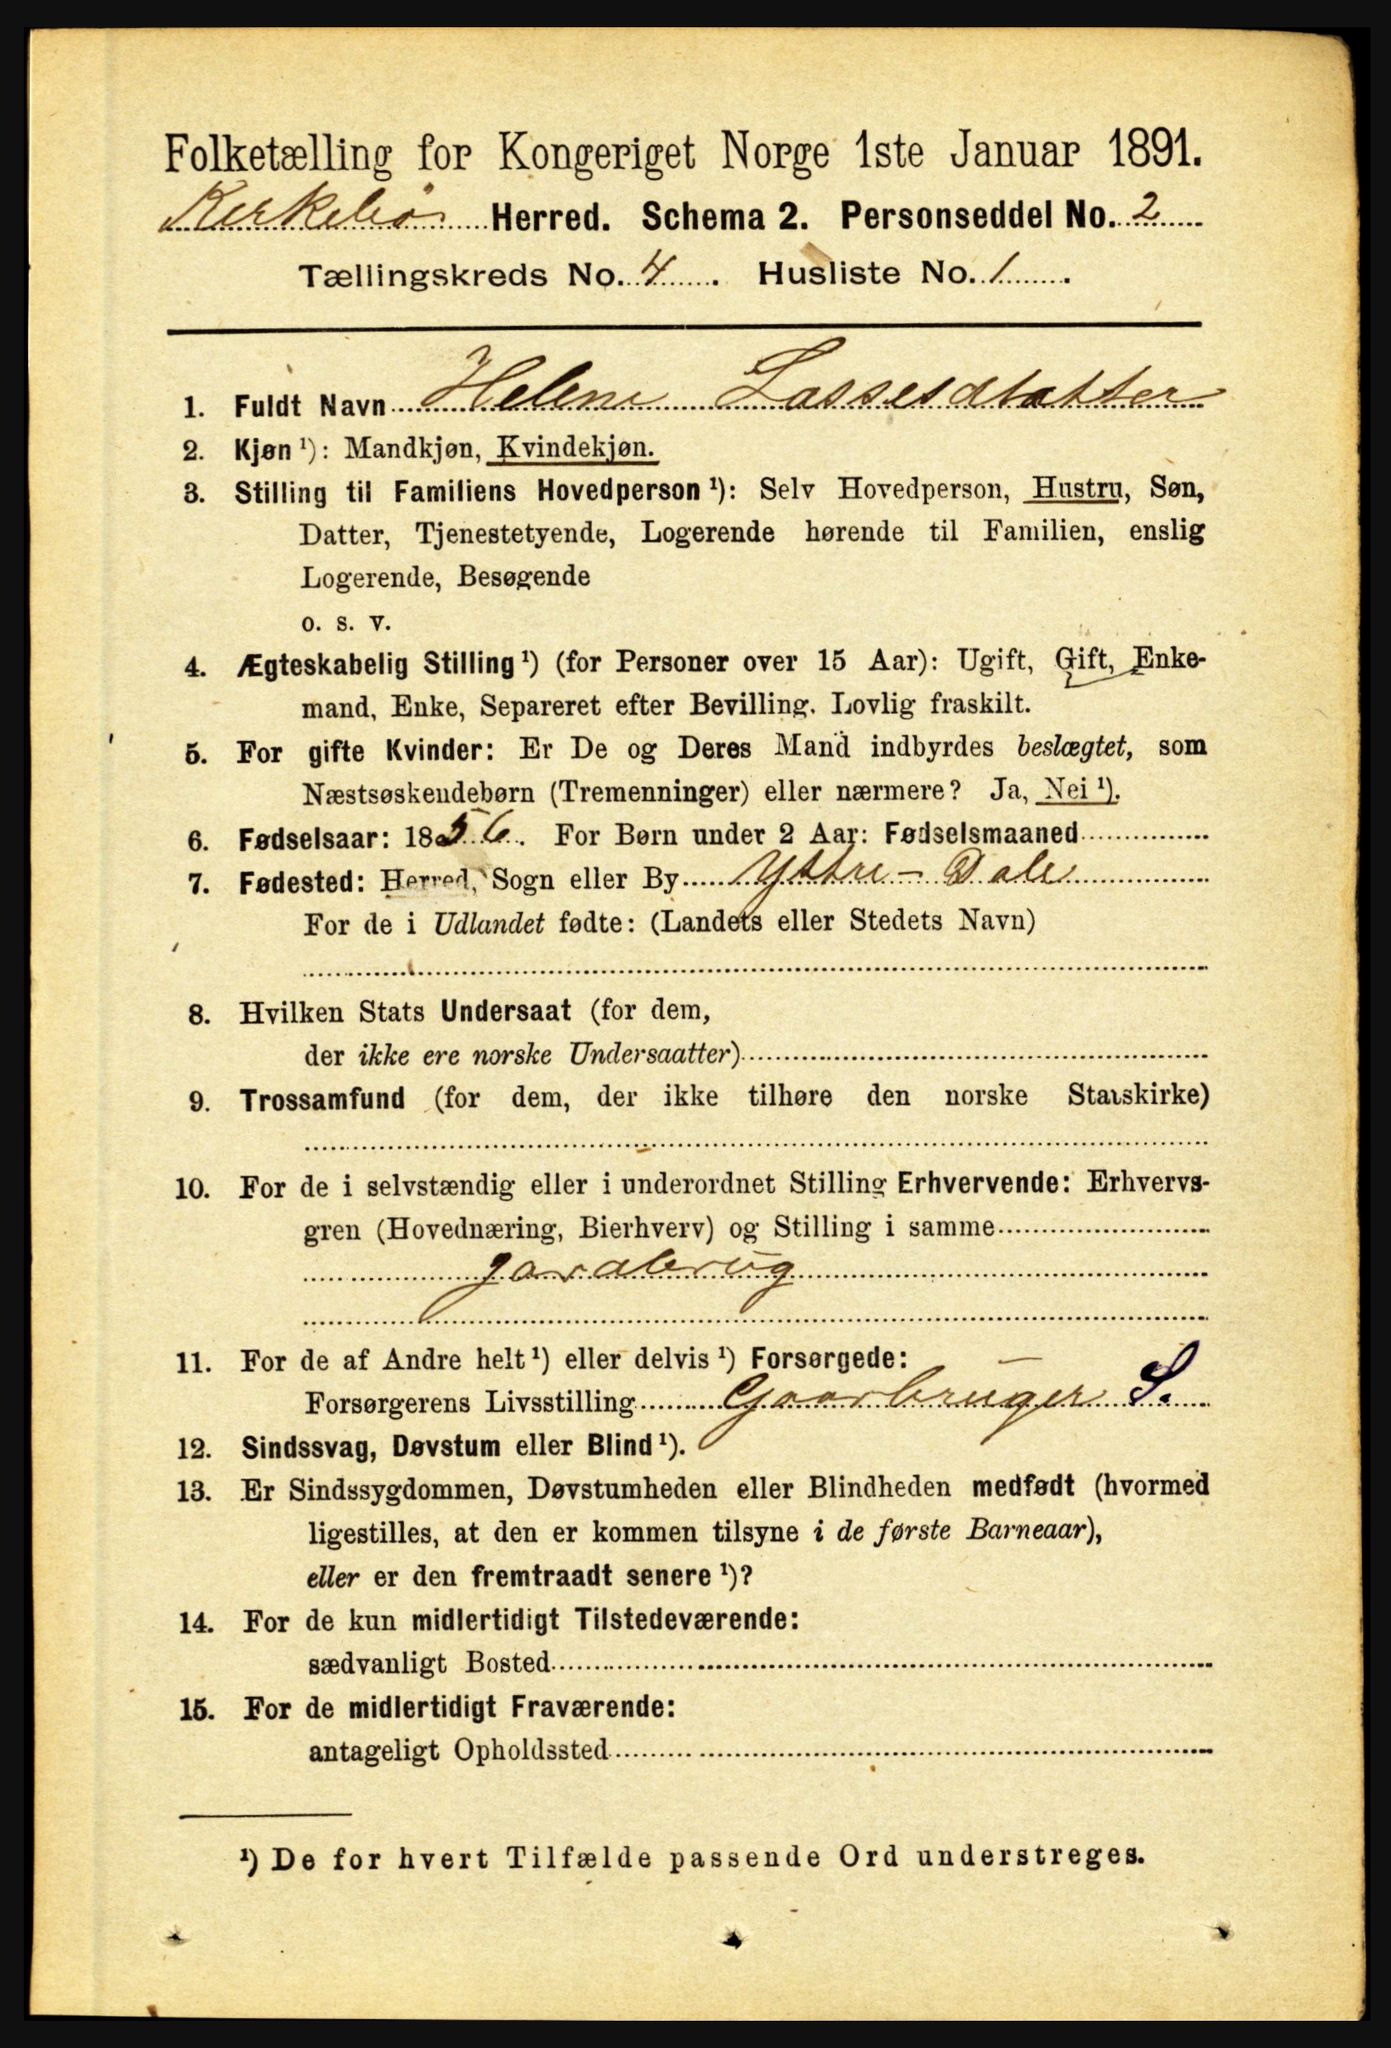 Folketælling for Kongeriget Norge 1ste Januar 1891.
Kirkebø Herred. Schema 2. Personseddel No. 2
Tællingskreds No. 4. Husliste No. 1.
1. Fuldt Navn Helene Lassesdtatter
2. Kjøn ¹): Mandkjøn, Kvindekjøn.
3. Stilling til Familiens Hovedperson ¹): Selv Hovedperson, Hustru, Søn,
Datter, Tjenestetyende, Logerende hørende til Familien, enslig
Logerende, Besøgende
o. s. v.
4. Ægteskabelig Stilling ¹) (for Personer over 15 Aar): Ugift, Gift, Enke-
mand, Enke, Separeret efter Bevilling. Lovlig fraskilt.
5. For gifte Kvinder: Er De og Deres Mand indbyrdes beslægtet, som
Næstsøskendebørn (Tremenninger) eller nærmere? Ja, Nei ¹).
6. Fødselsaar: 1856. For Børn under 2 Aar: Fødselsmaaned
7. Fødested: Herred, Sogn eller By Yttre-Dale
For de i Udlandet fødte: (Landets eller Stedets Navn)
8. Hvilken Stats Undersaat (for dem,
der ikke ere norske Undersaatter)
9. Trossamfund (for dem, der ikke tilhøre den norske Statskirke)
10. For de i selvstændig eller i underordnet Stilling Erhvervende: Erhvervs-
gren (Hovednæring, Bierhverv) og Stilling i samme
garabrug
11. For de af Andre helt ¹) eller delvis ¹) Forsørgede:
Forsørgerens Livsstilling Gaarbruger S.
12. Sindssvag, Døvstum eller Blind ¹).
13. Er Sindssygdommen, Døvstumheden eller Blindheden medfødt (hvormed
ligestilles, at den er kommen tilsyne i de første Barneaar),
eller er den fremtraadt senere ¹)?
14. For de kun midlertidigt Tilstedeværende:
sædvanligt Bosted
15. For de midlertidigt Fraværende:
antageligt Opholdssted
¹) De for hvert Tilfælde passende Ord understreges.